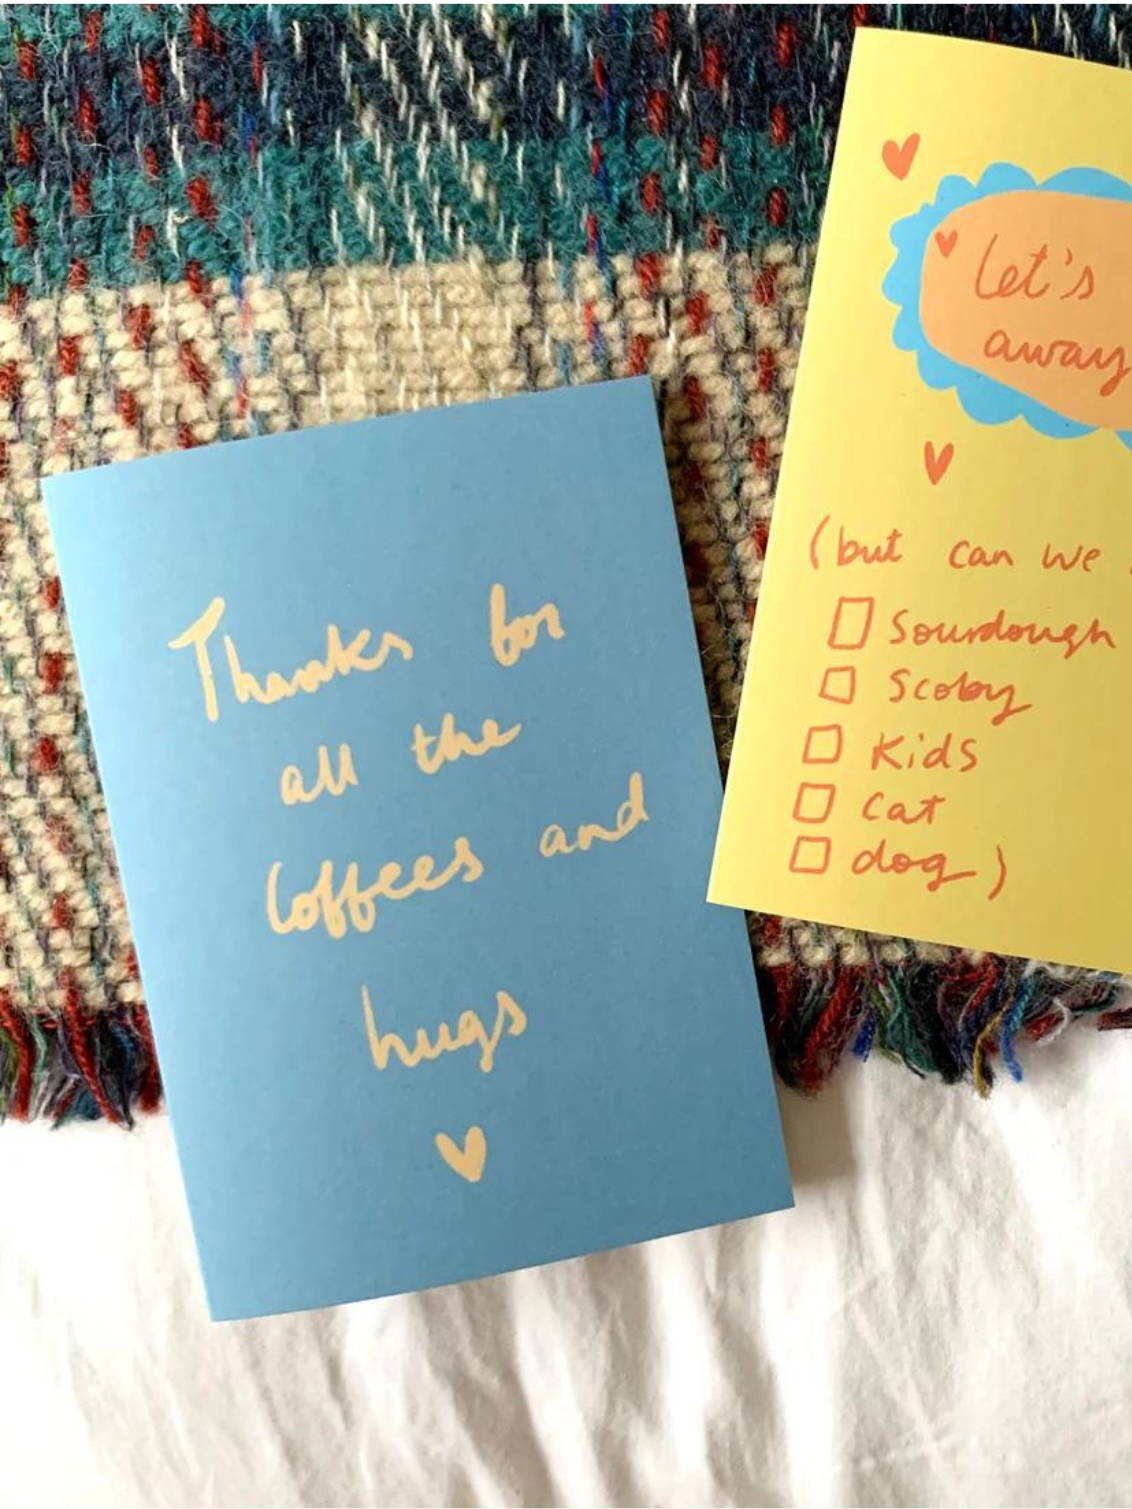 Thanks for
all the
Coffees and
hugs
let's
away
(but can we
Sourdough
Scoby
Kids
Cat
dog)